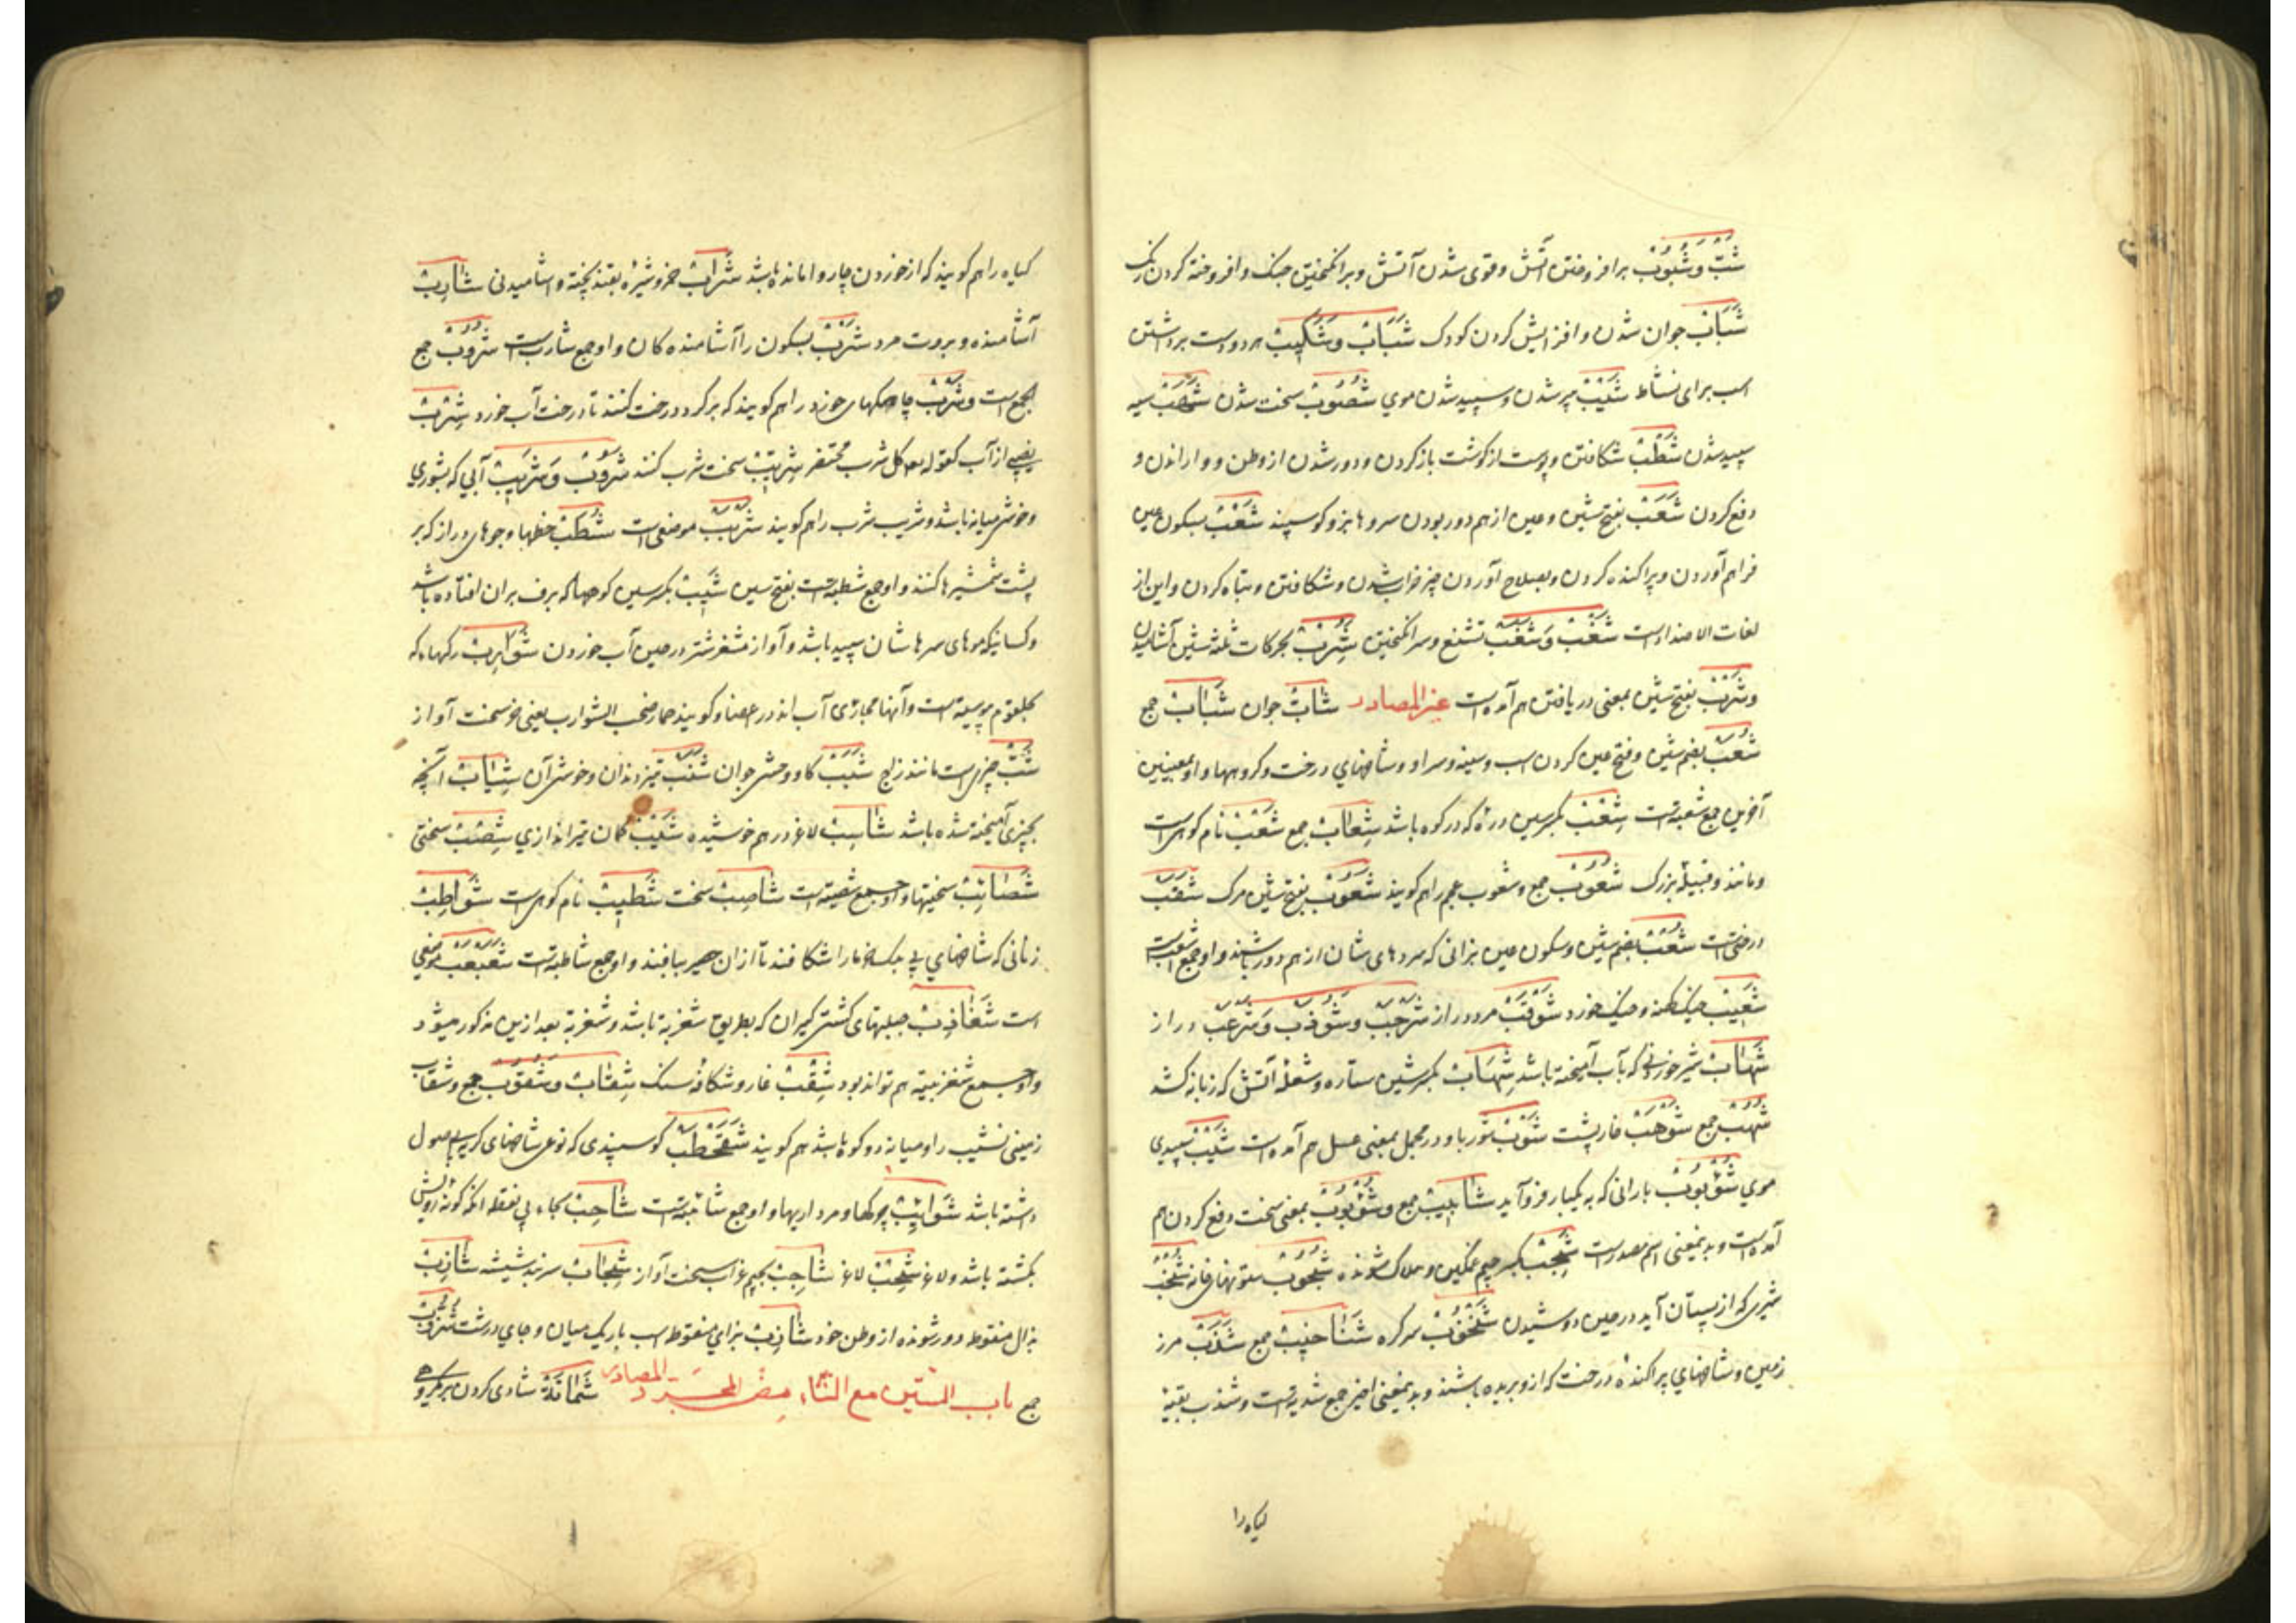 شَبّ وَشُبُوب برافروختن آتش و قوی شدن آتش و برانکیختن جنک و افروخته کردن رنک
شَبَاب جوان شدن و افزایش کردن کودک شَبَاب وَشَبِیب هر دو دست برداشتن
اسب برای نشاط شَیْب پیر شدن و سپید شدن موی شُصُوب سخت شدن شَهَب سیه
سپید شدن شَطْب شکافتن و پوست از کوشت باز کردن و دور شدن از وطن و واراندن و
دفع کردن شَعَب بفتح شین و عین از هم دور بودن سروهای بز و کوسپند شَعْب بسکون عین
فراهم آوردن و پراکنده کردن و بصلاح آوردن چیز خراب شدن و شکافتن و تباه کردن و این از
لغات الاضداد است شَغْب وَشَغَب تشنع و سر انکیختن شُِرْب بحرکات ثلثه شین آشامیدن
وشَرْب بفتح شین بمعنی دریافتن هم آمده است غیر المصادر شَابّ جوان شَبَاب جمع
شُعَب بضم شین و فتح عین کردن اسب و سینه و سر او و شاخهای درخت و کروهها و او بمعنیین
آخرین جمع شعبة است شِعْب بکسر سین دره که در کوه باشد شِعَاب جمع شَعْب نام کوهی است
و مانند و قبیله بزرک شُعُوب جمع و شعوب عجم را هم کویند شَعُوب بفتح شین مرک شَقَب
درختی است شُعْب بضم شین و سکون عین بزانی که سروهای شان از هم دور باشند و او جمع اشعب است
شَعِیب خیک کهنه و خیک خورد شَوْقَب مرد دراز شَرْجَب وشَوْذَب وَشَرْعَب دراز
شَهَاب شیر خوردنی که بآب آمیخته باشد شِهَاب بکسر شین ستاره و شعله آتش که زبانه کشد
شُهُب جمع شَوْهَب خارپشت شَوْب شوربا و در مجمل بمعنی عسل هم آمده است شَیْب سپیدی
موی شُؤْبُوب بارانی که به یکبار فرو آید شَآبِیب جمع وشُؤْبُوب بمعنی سخت دفع کردن هم
آمده است و بدینمعنی اسم مصدر است شَجِب بکسر جیم غمکین و هلاک شونده شُجُوب ستونهای خانه شُخْب
شیری که از پستان آید در حین دوشیدن شُنْخُوب سر کوه شَنَاخِیب جمع شَذَب مرز
زمین و شاخهای پراکنده درخت که ازو بریده باشند و بدینمعنی اخیر جمع شذبة است و شذب بقیه
کیاه را
کیاه را هم کویند که از خوردن چاروا مانده باشد شَرَاب خمر و شیره بقند پخته و اشامیدنی شَارِب
آشامنده و بروت مرد شَرْب بسکون را آشامنده کان و او جمع شارب است شُرُوب جمع
الجمع است وشَرَب چاهکهای خورد را هم کویند که بر کرد درخت کنند تا درخت آب خورد شِرْب
نصیبی از آب کقوله تعه کل شرب محتضر شِرِّیب سخت شرب کننده شَرُوب وَشَرِیب آبی که بشوری
و خوشی میانه باشد و شریب شرب را هم کویند شُرْبَب موضعی است شُطَب خطها و جوهای دراز که بر
پشت شمشیرها کنند و او جمع شطبة است بفتح سین شِیب بکسر سین کوهها که برف بران افتاده باشد
و کسانیکه موهای سرها شان سپید باشد و آواز مشفر شتر در حین آب خوردن شَوَارِب رکهاء که
بحلقوم پیوسته است و آنها مجاری آب اند در اعضا و کویند حمار صخب الشوارب یعنی خر سخت آواز
شَبّ چیزی است مانند زاج شَبَب کاو وحشی جوان شَنَب تیزی دندان و خوشی آن شِیَاب آنچه
بچیزی آمیخته شده باشد شَاسِب لاغر درهم خوشیده شَسِیب کمان تیراندازی شِصْب سختی
شَصَائِب سختیها و او جمع شصیبة است شَاصِب سخت شَطِیب نام کوهی است شَوَاطِب
زنانی که شاخهای بی برک خرما را شکافند تا ازان حصیر ببافند و او جمع شاطبة است شَعَبْعَب موضعی
است شَغَازِب حیلهای کشتی کیران که بطریق شغزبه باشد و شغزبه بعد ازین مذکور میشود
و او جمع شغزبیة هم تواند بود شِقْب غار و شکاف سنک شِقَاب وشُقُوب جمع و شقاب
زمینی نشیب را و میانه دو کوه باشد هم کویند شَقَحْطَب کوسپندی که نوعی شاخهای کریه یا مهول
داشته باشد شَوَائِب چرکها و مرداریها و او جمع شائبة است شَاحِب بحاء بی نقطه آنکه کونه رویش
بکشته باشد و لاغر شَحِب لاغر شَاجِب بجیم غراب سخت آواز شِجَاب سربند شیشه شَاذِب
بذال منقوطه دور شونده از وطن خود شَازِب بزای منقوطه اسب باریک میان و جای درشت شُزُب
جمع باب الشین مع التاء من المجرد المصادر شَمَاتَة شادی کردن بر مکروهی